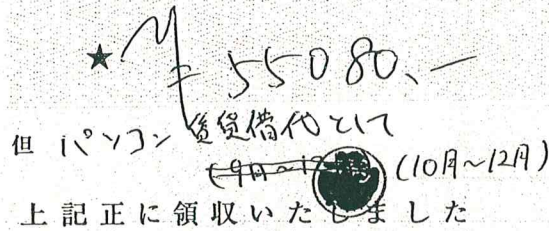 ★ ¥55080.—
但 パソコン賃貸借代として
(9月〜12月) (10月〜12月)
上記正に領収いたしました